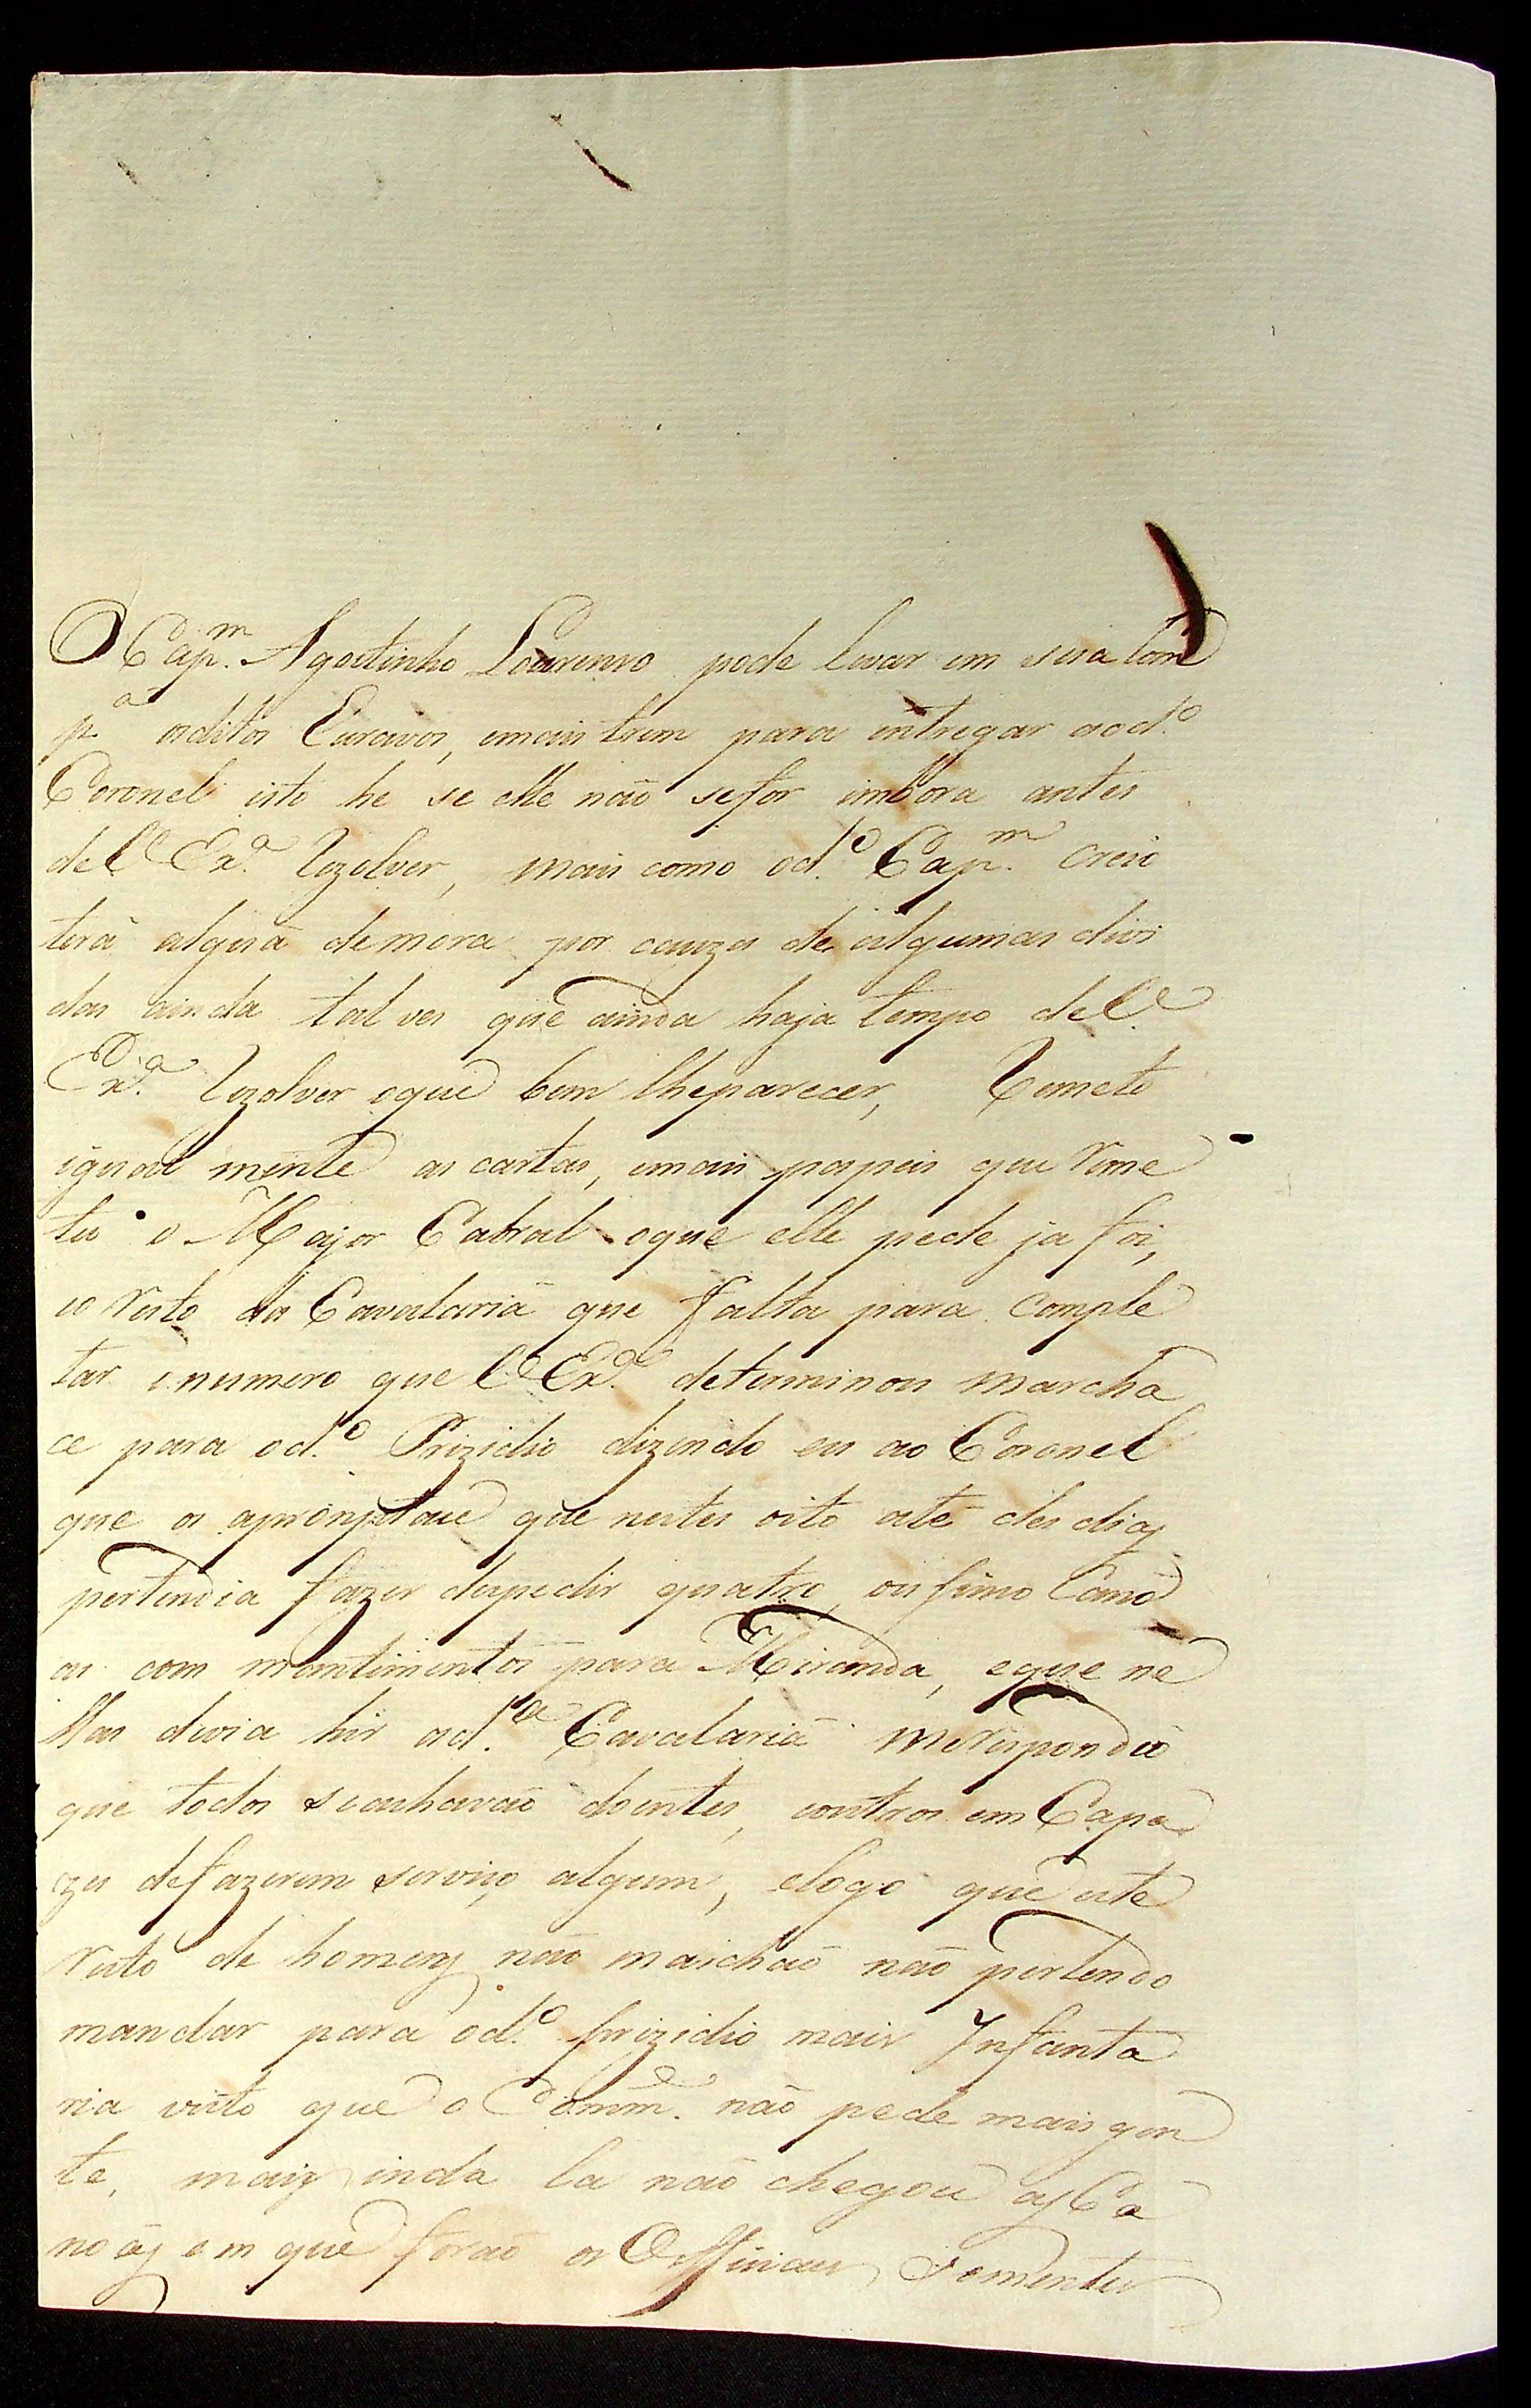 O Cap.m Agostinho Lourenso pode levar em sua com
p.a os ditos Escravos, emais trem para intregar aod.o
Coronel isto he se elle não sefor imbora antes
deV Ex.a Rezolver, mais como od.o Cap.m creio
terá alguã demora por cauza de algumas divi
das ainda talves que ainda haja tempo deV.
Ex.a Rezolver oque bem lheparecer, Remeto
igual mente as cartas, emais papeis que Reme
teu o Major Cabral oque elle pede ja foi,
eo Resto da Cavalaria que falta para comple
tar o numero que V Ex.a determinou marcha
ce para od.o Prizidio dizendo eu ao Coronel
que os apronptace que nestes oito até des dias
pertendia fazer despedir quatro, ou sinco Cano
as com mantimentos para Miranda, eque ne
llas devia hir ad.a Cavalaria meRespondeo
que todos seachavão doentes, eoutros em Capa
zes defazerem serviso algum, elogo que este
Resto de homens não marchão não pertendo
mandar para od.o prizidio mais Infanta
ria visto que o Comm.e não pede mais gen
te, mais inda la não chegou as Ca
noas em que forão os Offiniaes, Somentes